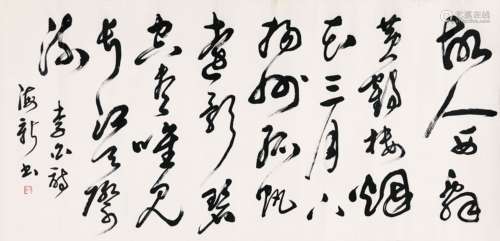 故人西辞
黄鹤楼烟
花三月下
扬州孤帆
远影碧
空尽唯见
长江天际
流
李白诗
海新书